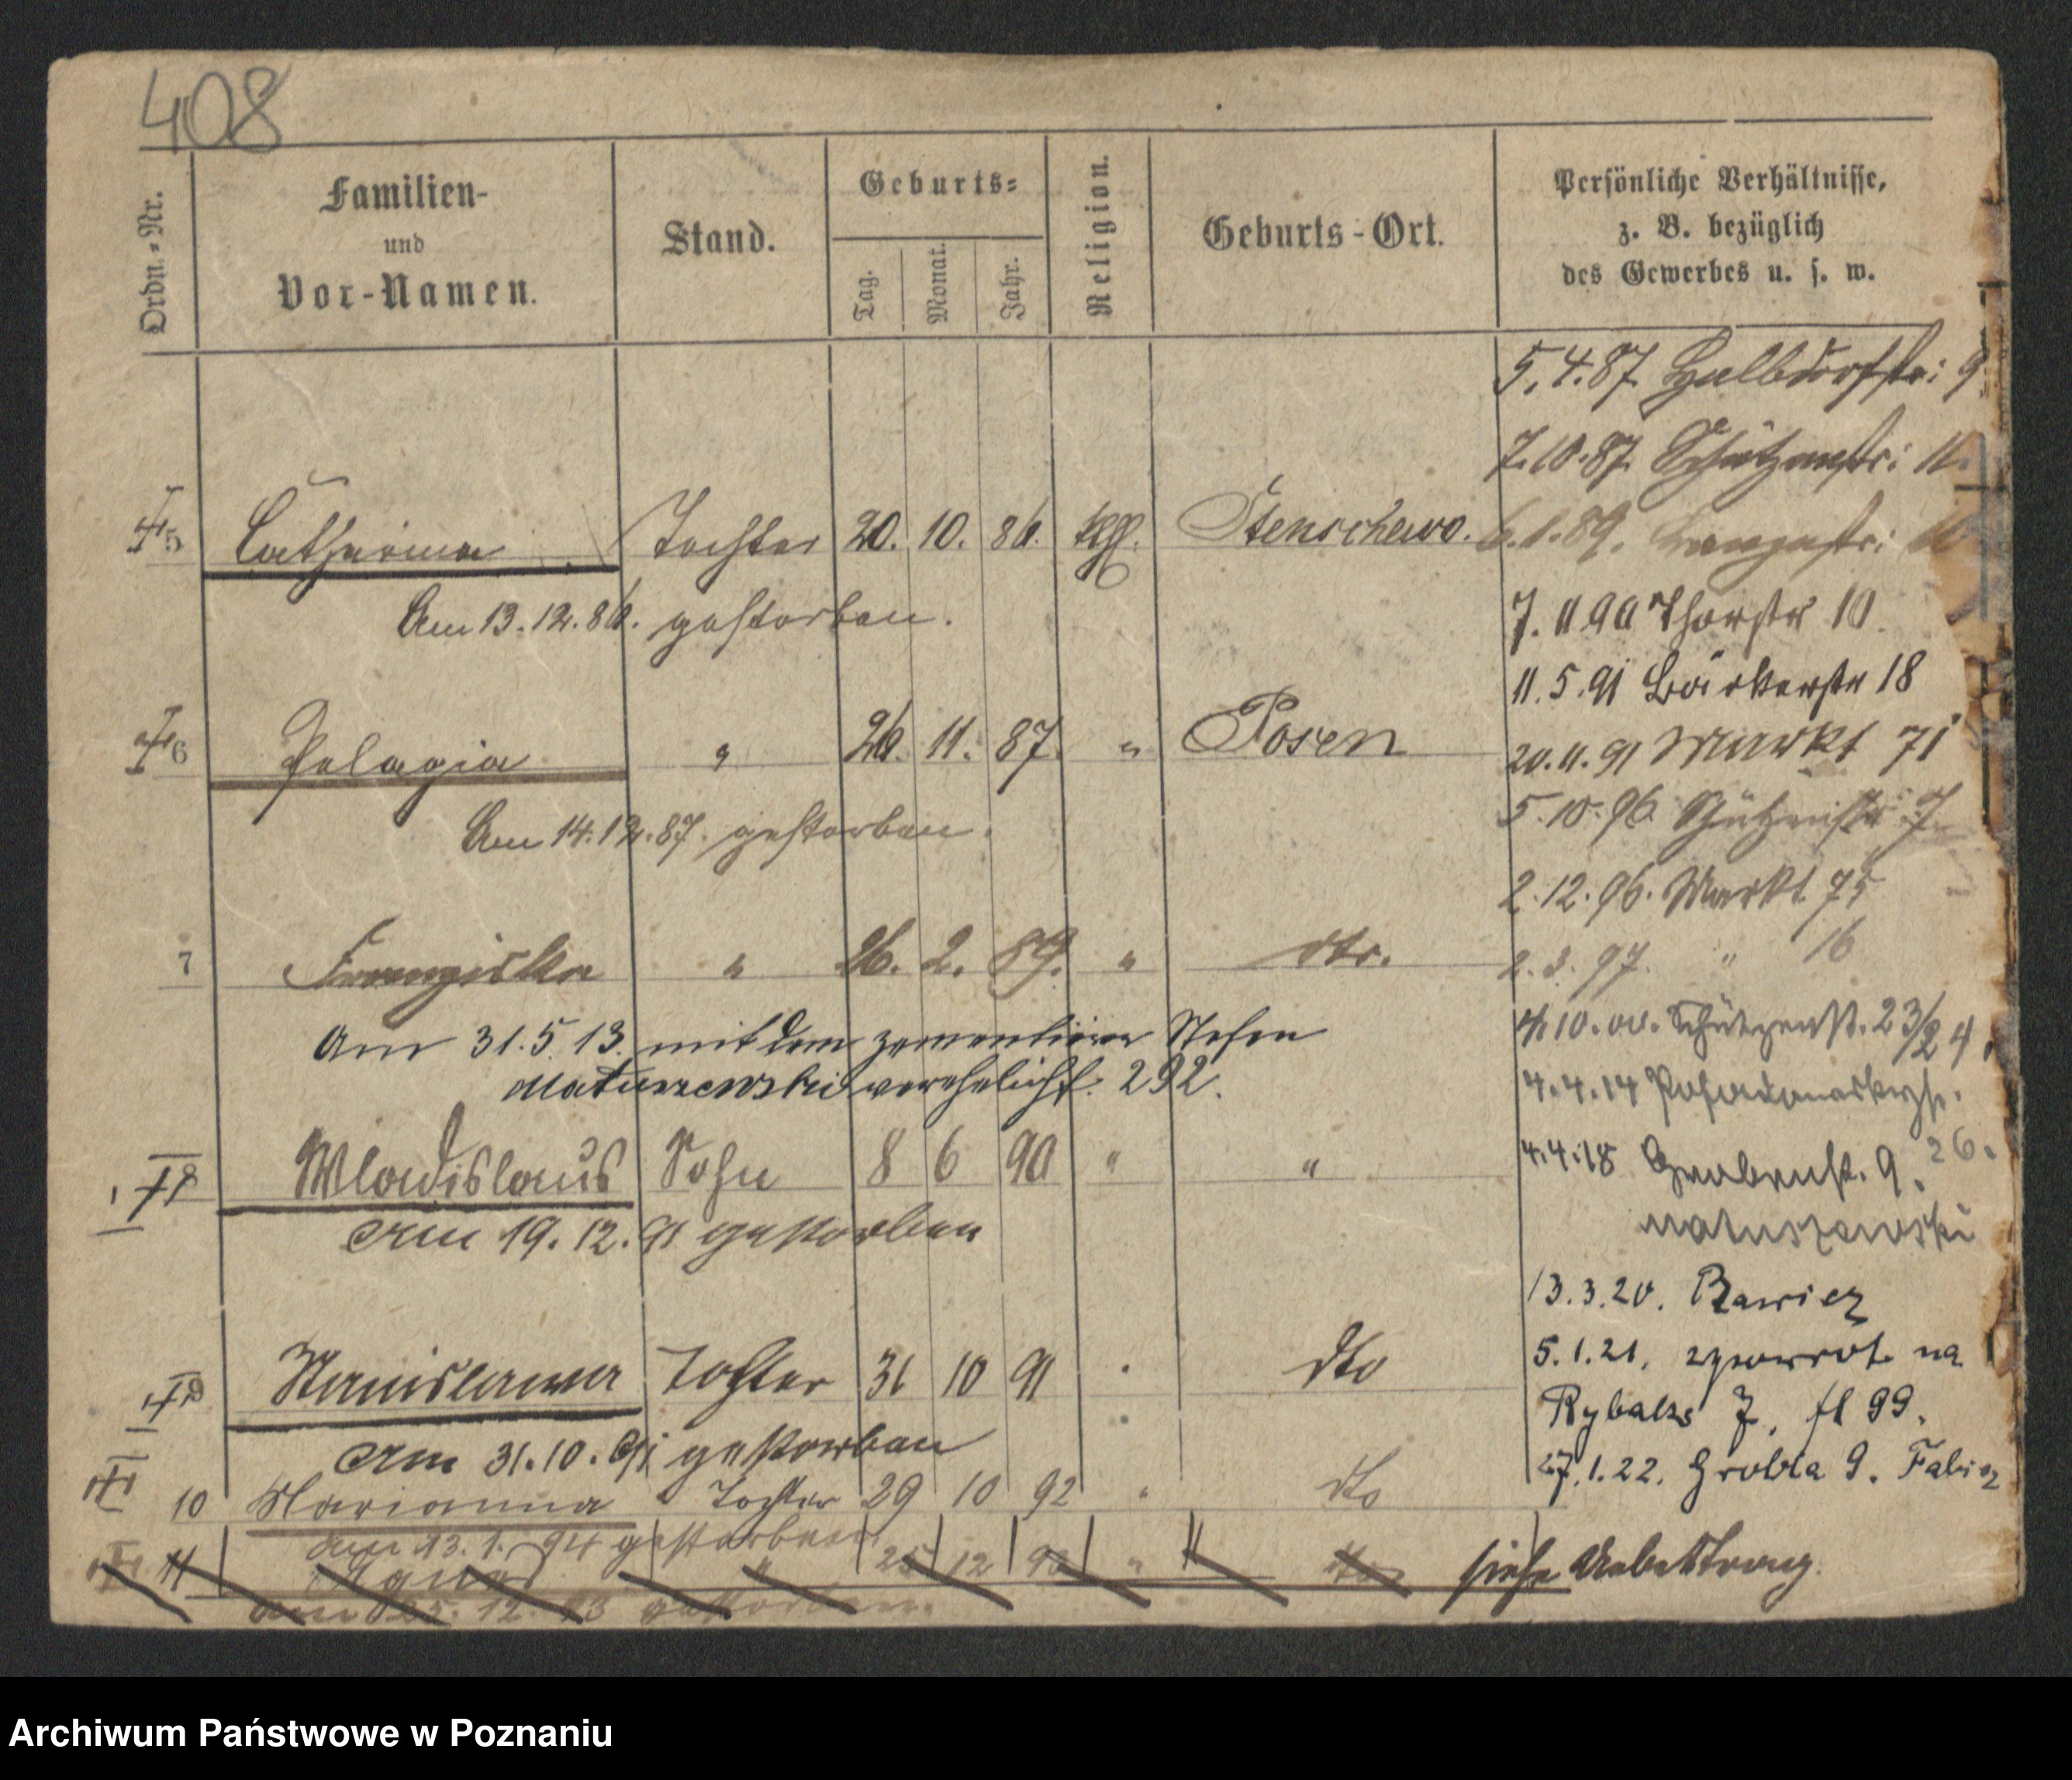 408
Ordn.-Nr.
Familien-
und
Vor-Namen.
Stand.
Geburts-
Tag.
Monat.
Jahr.
Religion.
Geburts-Ort.
Persönliche Verhältnisse,
z. B. bezüglich
des Gewerbes u. s. w.
5.4.87. Halbdorfstr: 9
7.10.87. Schützenstr: 11.
5 Catharina Tochter 20. 10. 86. kth. Stenschewo.
6.1.89. Langestr:
Am 13.12.86. gestorben.
7.11.90 Thorstr 10
11.5.91 Bäckerstr 18
6 Pelagia " 26. 11. 87. " Posen
20.11.91 Markt 71
Am 14.12.87. gestorben.
5.10.96 Schützenstr 7
2.12.96. Markt 75
7 Franziska " 26. 2. 89. " dto.
2.3.97. " 16
Am 31.5.13. mit dem Stefan
Matuszewski verehelicht. 292.
4.10.00. Schützenst. 23/24,
4.4.14
26.
8 Wladislaus Sohn 8 6 90 " "
4.4.18 Grabenst. 9.
Matuszewski
Am 19.12.91 gestorben
13.3.20. Rawicz
9 Stanislawa Tochter 31 10 91 dto
5.1.21. zpowrot. na
Rybaks 7, 99.
Am 31.10.91 gestorben
27.1.22. Grobla 9. Fabisz
10 Marianna Tochter 29 10 92 " dto
am 13.1.94 gestorben
11 " 25 12 93 " dto
siehe Uebertrag.
am 25.12.93 gestorben.
Archiwum Państwowe w Poznaniu